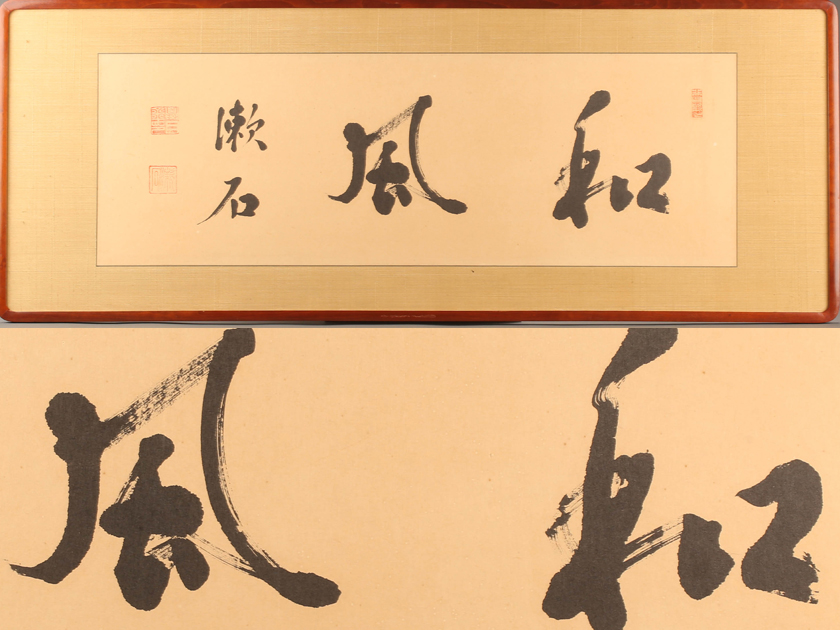 和風
漱石
和風